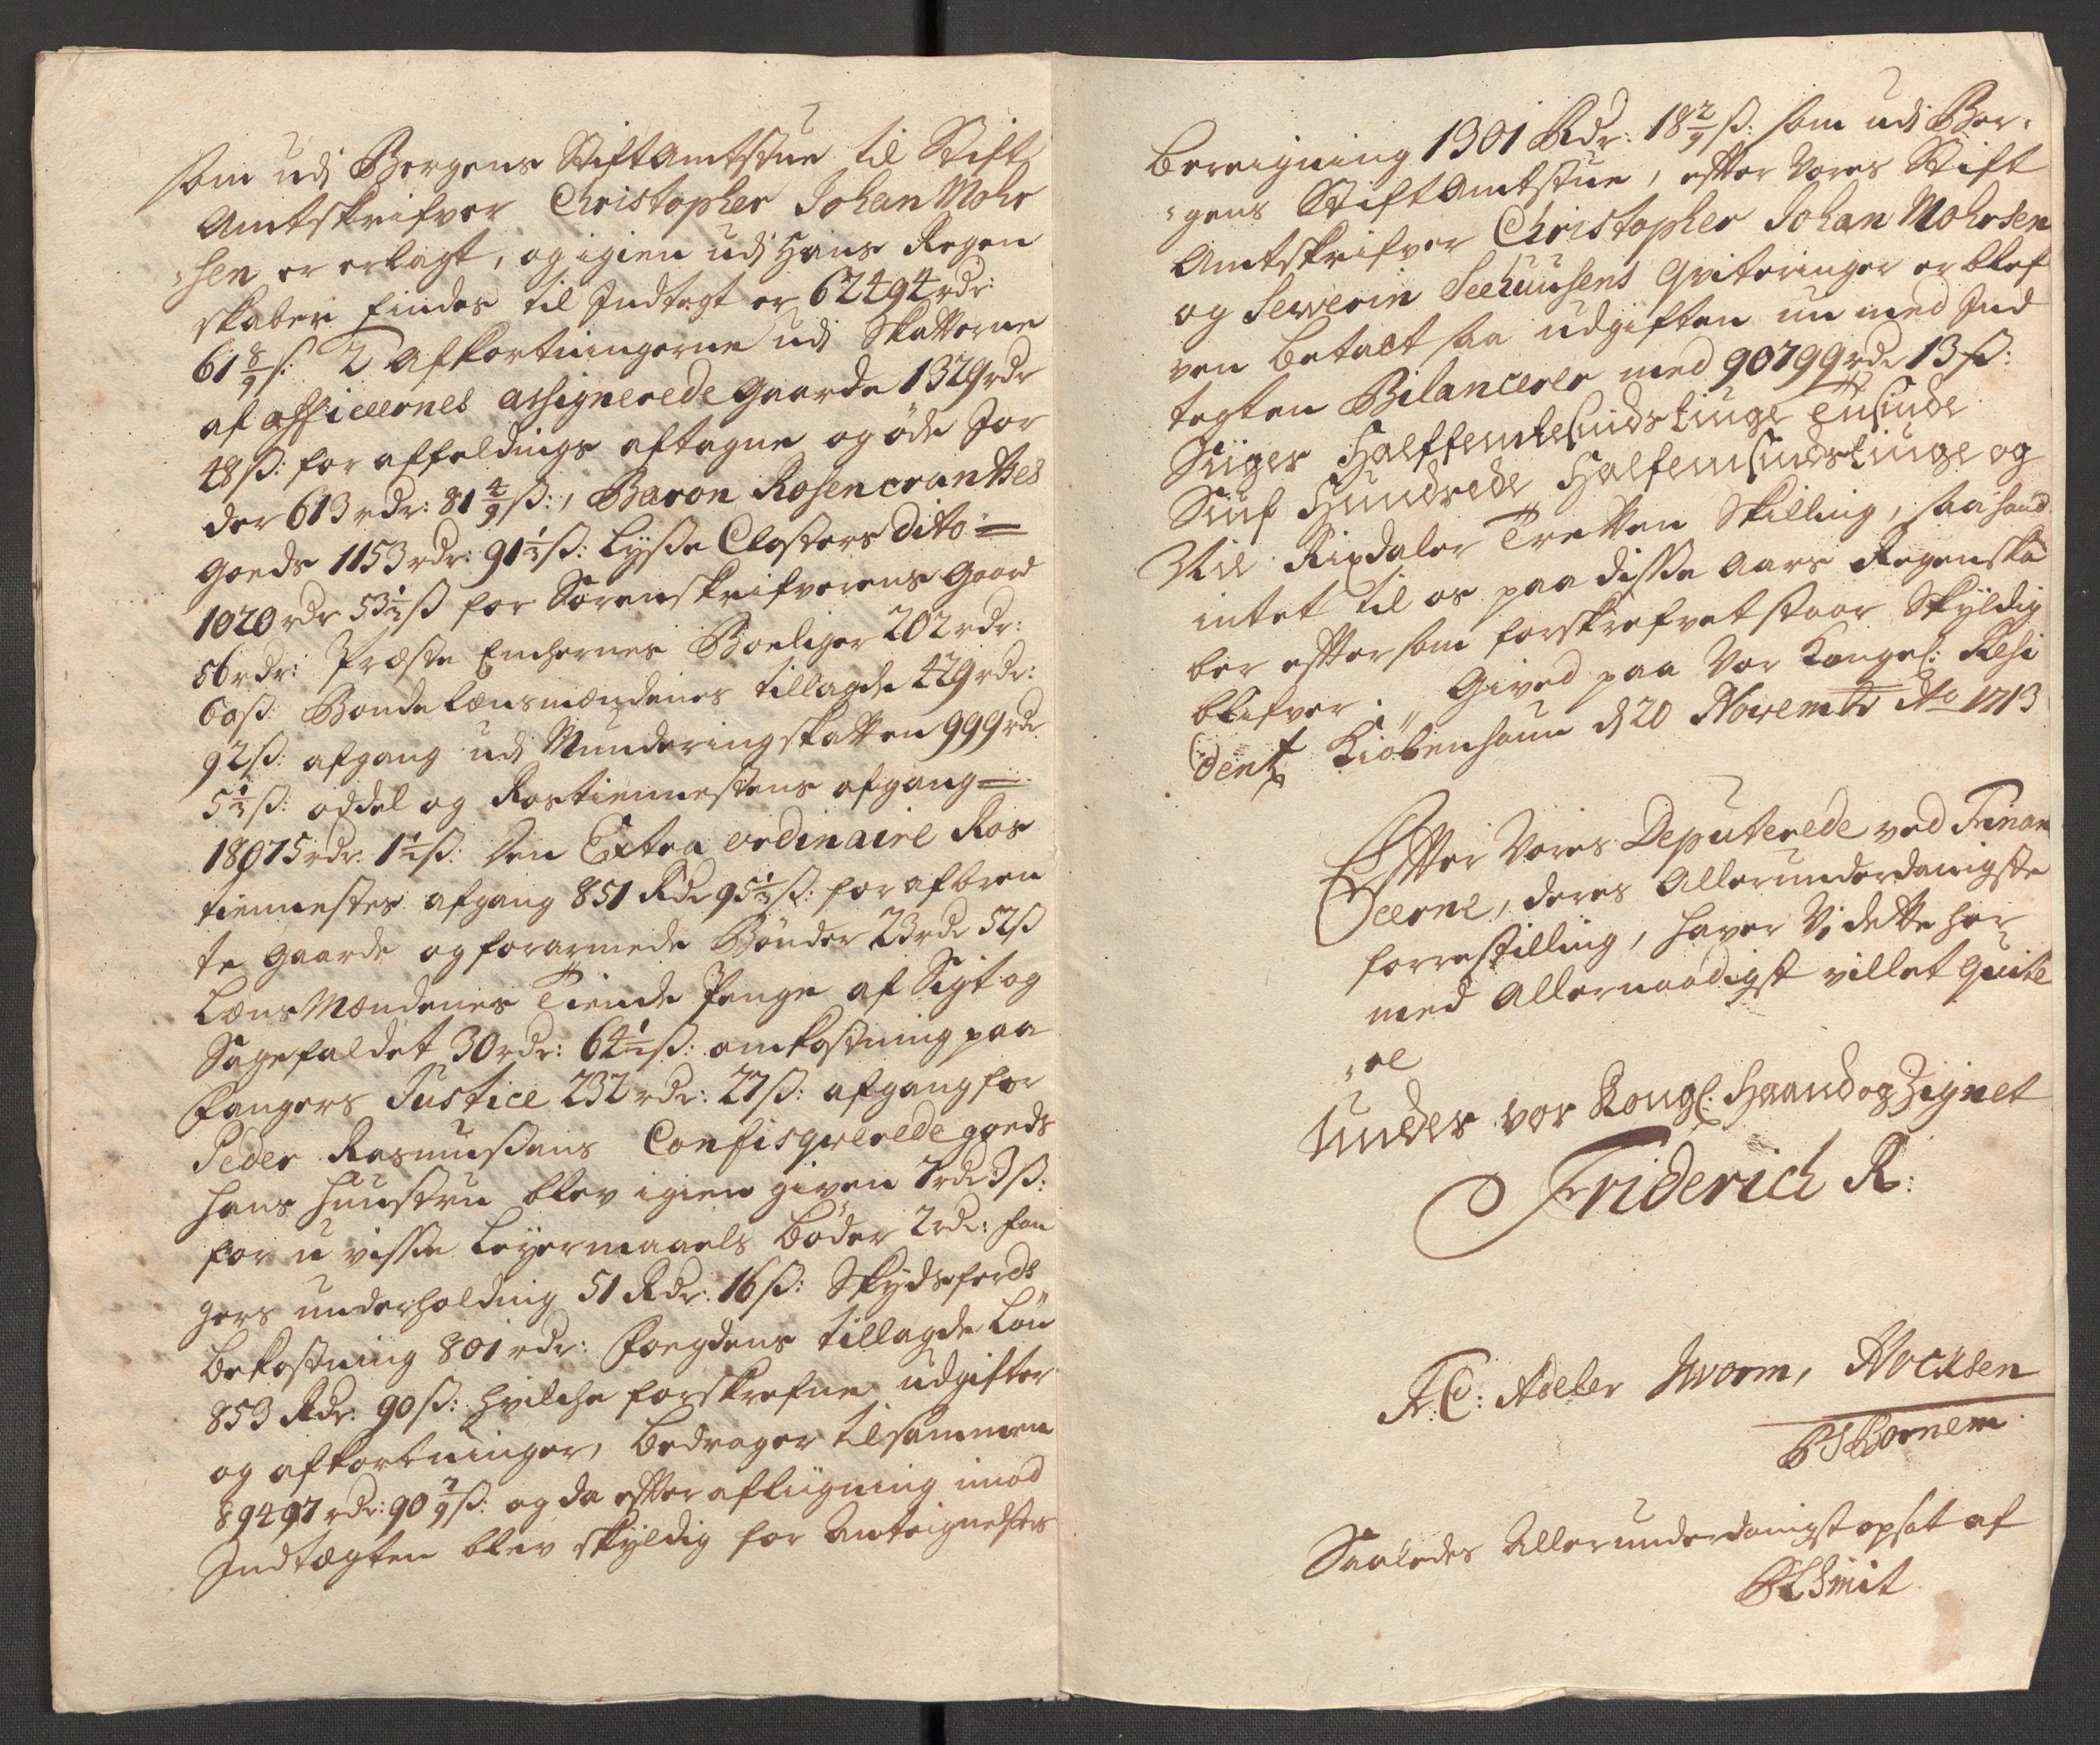 som udj Bergens Stiftamtstue til Stift
Amtskrifver Christopher Johan Mohr
-sen er erlagt, og igien udj Hans Regen
skaber findes til Indtegt er 62494 rdr:
61 8/9 s: 2 Afkortningerne udj Skatterne
af officeernes assignerede Gaarde 1329 rdr
48 ß: for affeldings aftagne og öde Jor
der 613 rdr: 81 4/9 ß:, Baron Rosencrantzes
Goeds 1153 rdr: 91 1/2 ß: Lysse Closters dito =
1020 rdr 53 1/2 ß for Sorenskrifverens Goard
56 rdr: Præste Enchernes Boeliger 202 rdr:
60 ß: Bonde lænsmændenes tillagde 429 rdr:
92 ß: afgang udj Munderingskatten 999 rdr
5 1/2 ß: oddel og Rostiennestens afgang =
18075 rdr: 1 1/2 ß: den Extra ordinaire Ros
tiennestes afgang 851 Rdr 95 1/2 ß: for afbren
te gaarde og forarmede Bönder 23 rdr 52 ß
LænsMændenes Tiende Penge af Sigt og
Sagefaldet 30 rdr: 64 1/2 ß: omkostning paa
Fangers Justice 232 rdr: 27 ß: afgang for
Peder Rasmussens Confisqverede goeds
hans Huustru blev igien given 7 rdr 3 ß:
for u visse Leyermaaels böder 2 rdr: fan
gers underholding 51 Rdr: 16 ß: Skydsferds
bekostning 801 rdr: Foegdens tillagde Lön
853 Rdr: 90 ß: hvilche forskrefne udgifter
og afkortninger, bedrager tilsammen
89497 rdr: 90 7/9 ß: og da efter afliigning imod
Indtægten blev skyldig for Antegnelsers
bereigning 1301 Rdr: 18 2/9 ß: som udj Ber-
-gens Stiftamtstue, efter Vores Stift
Amtskrifver Christopher Johan Mohrsen
og Severin Seehuusens Qviteringer er blef
ven betalt saa udgiften nu med Ind
tegten Bilancerer med 90799 rdr 13 ß:
Siiger Halffemsesindstiuge Tusinde
Siuf Hundrede Halfemsindstiuge og
Nie Rixdaler Tretten Skilling, saa hand
intet til os paa disse Aars Regenska
ber efter som forskrefvet staar Skyldig
blifver. Gived paa Vor Kongel: Resi
dentz Kiöbenhaun d 20 Novembr Ao 1713
Efter Vores Deputerede ved Finan
ceerne, deres Allerunderdanigste
forrestilling, haver Vi dette her
med Allernaadigst villet quite
-re
Under vor Kongl: Haand og Zignet
Friderich R:
F: C: Adeler Jworm, AvocKsen
Saaledes Allerunderdanigst opsat af